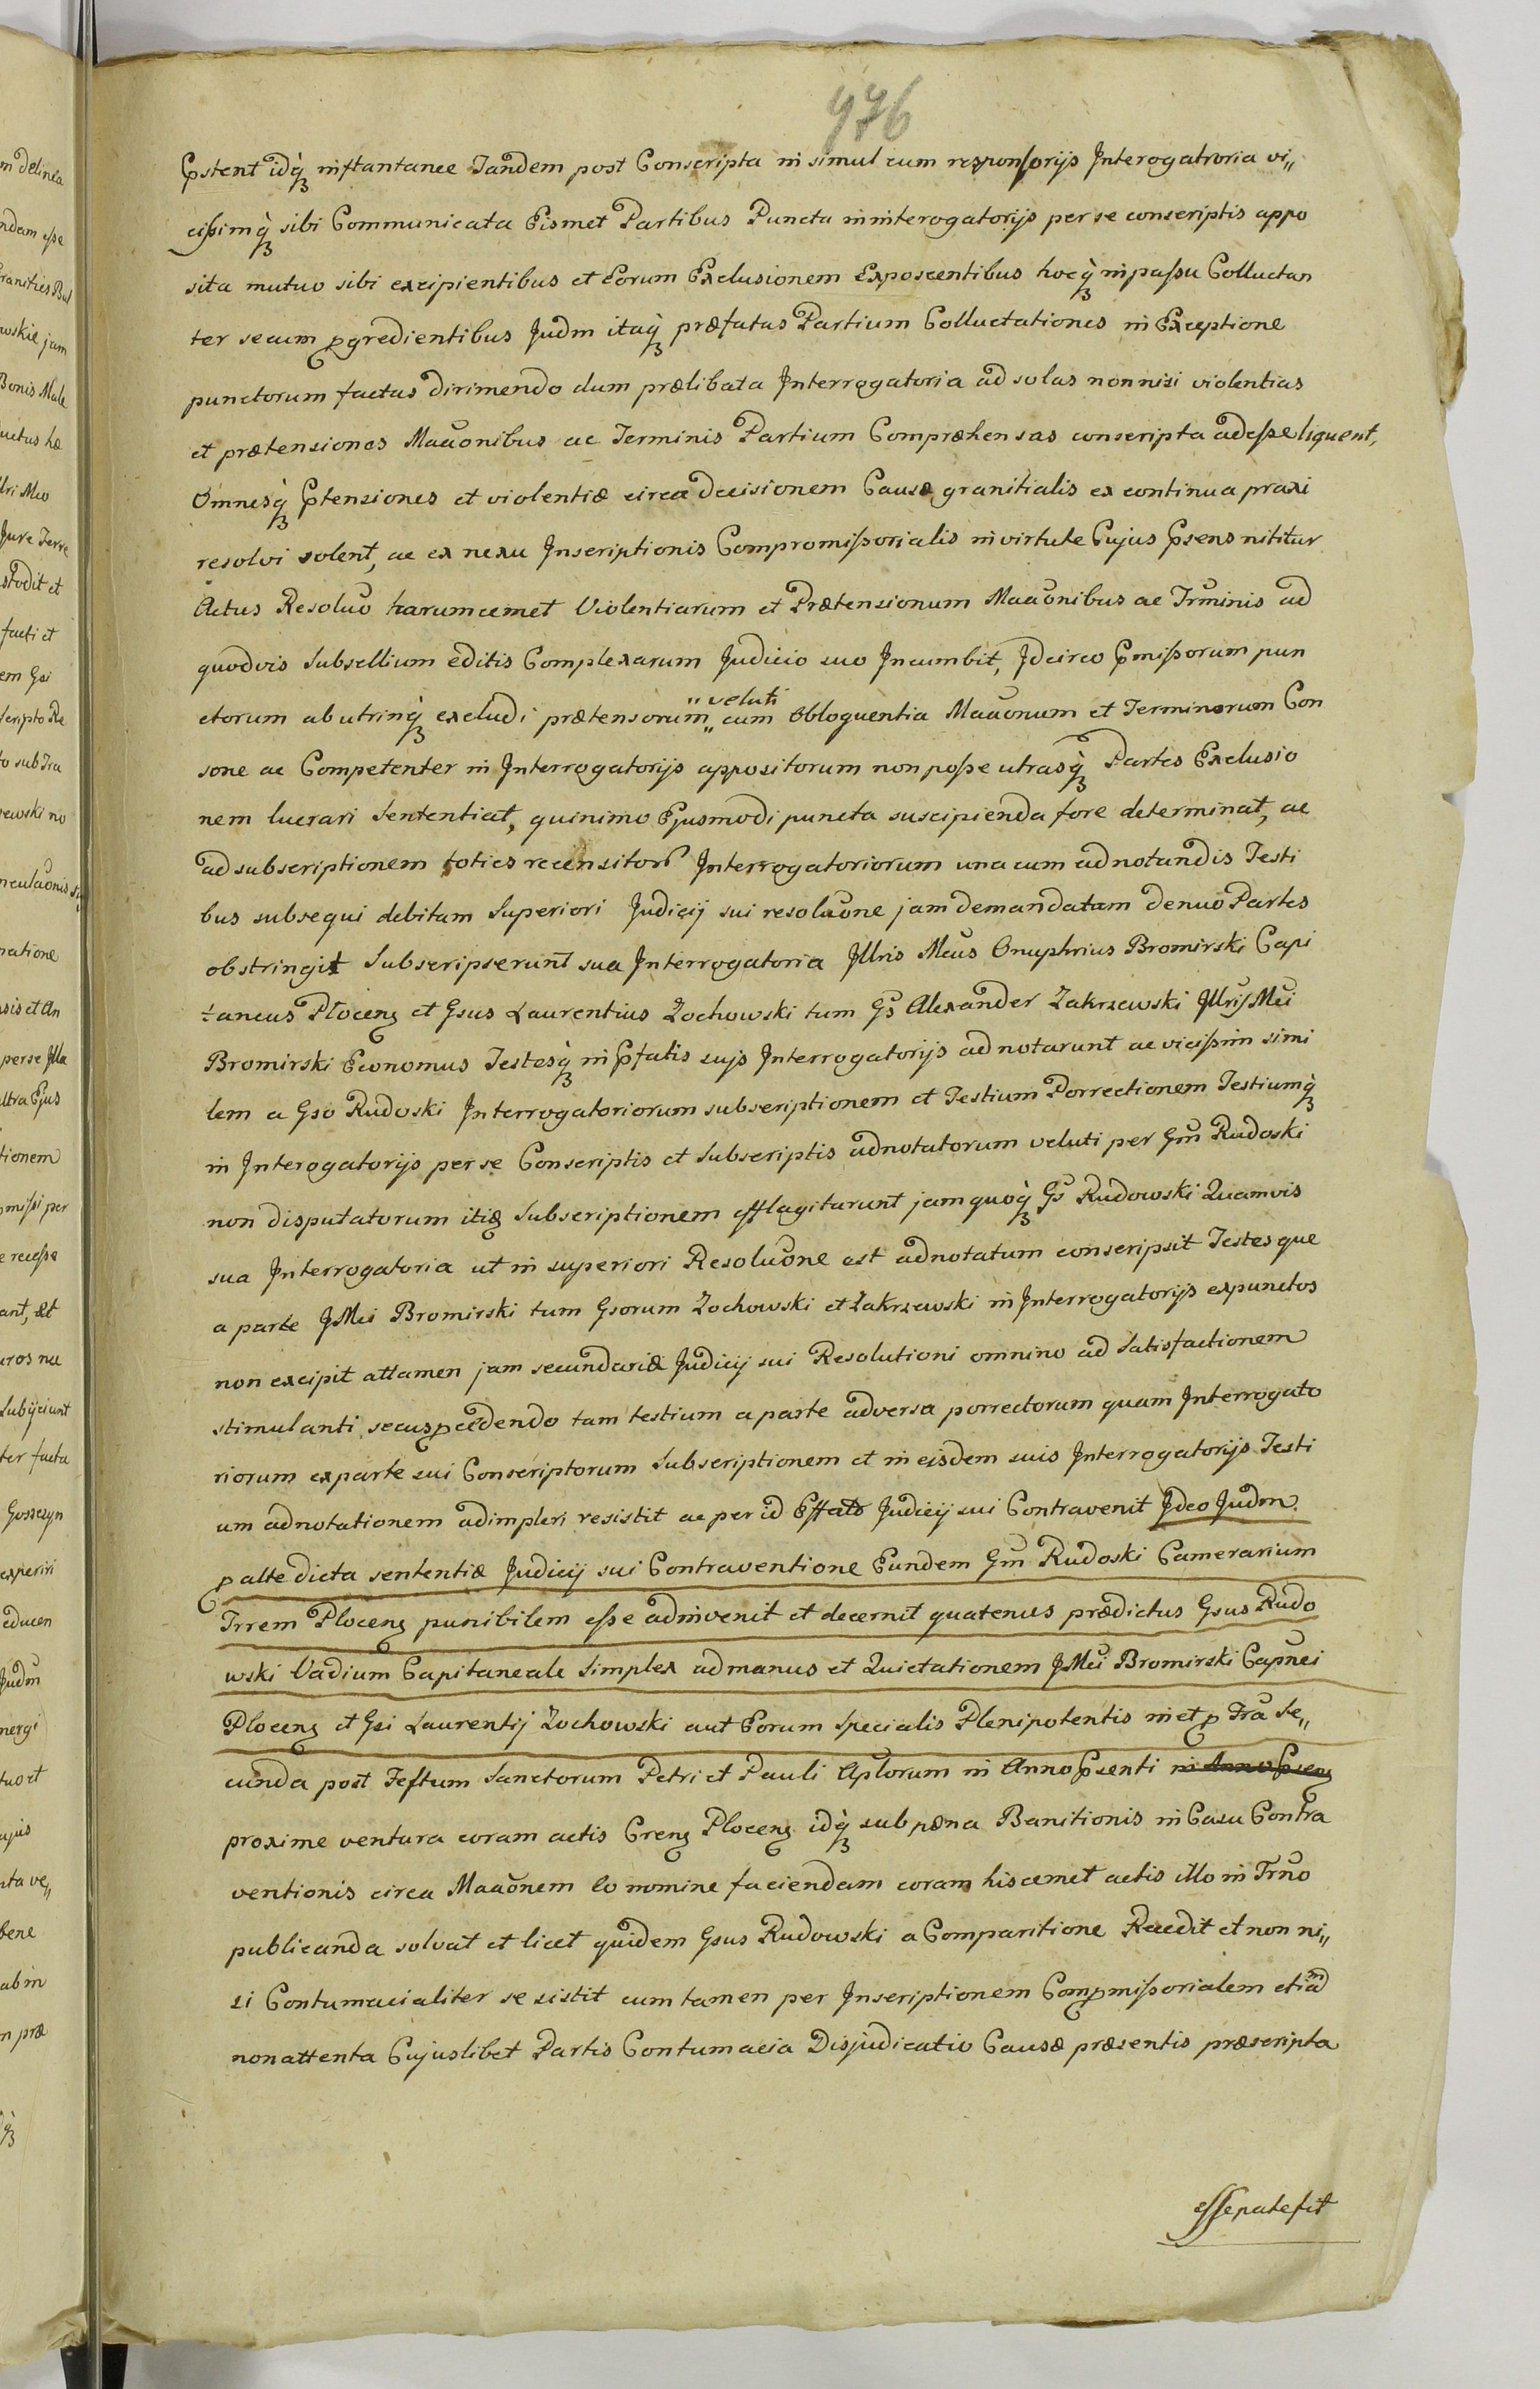 976
Pstent idq3 instantanee Tandem post Conscripta in simul cum responsorijs Interogatroria vi„
cißimq3 sibi Communicata Eismet Partibus Puncta in interogatorijs per se conscriptis appo
sita mutuo sibi excipientibus et Eorum Exclusionem Exposcentibus hocq3 in paßu Colluctan
ter secum pgredientibus Judm itaq3 præfatas Partium Colluctationes in Exceptione
punctorum factas dirimendo dum prælibata Interrogatoria ad solas non nisi violentias
et prætensiones Maõnibus ac Terminis Partium Compræhensas conscripta adeße liquent,
Omnesq3 Ptensiones et violentiæ circa decisionem Causæ granitialis ex continua praxi
resolvi solent, ac ex nexu Inscriptionis Compromißorialis in virtute Cujus Psens nititur
Actus Resoluo harumcemet Violentiarum et Prætensionum Maõnibus ac Trminis ad
quodvis Subsellium editis Complexarum Judicio suo Incumbit, Idcirco Pmißorum pun
ctorum ab utrinq3 excludi prætensorum „veluti„ cum Obloquentia Maõnum et Terminorum Con
sone ac Competenter in Interrogatorijs appositorum non poße utrasq3 Partes Exclusio
nem lucrari Sententiat, quinimo Ejusmodi puncta suscipienda fore determinat, ac
ad subscriptionem toties recensitor Interrogatoriorum una cum adnotandis Testi
bus subsequi debitam Superiori Judicij sui resolũone jam demandatam denuo Partes
obstringit Subscripserunt sua Interrogatoria Jllris Mcus Onuphrius Bromirski Capi
taneus Płocens et Gsus Laurentius Zochowski tum Gs Alexander Zakrzewski Jllris Mci
Bromirski Economus Testesq3 in Pfatis sujs Interrogatorijs adnotarunt ac vicißim simi
lem a Gso Rudoski Interrogatoriorum subscriptionem et Testium Porrectionem Testiumq3
in Interogatorijs per se Conscriptis et Subscriptis adnotatorum veluti per Gm Rudoski
non disputatorum itid Subscriptionem efflagitarunt jam quoq3 Gs Rudowski Quamvis
sua Interrogatoria ut in superiori Resolũone est adnotatum conscripsit Testesque
a parte JMci Bromirski tum Gsorum Zochowski et Zakrzewski in Interrogatorijs expunctos
non excipit attamen jam secundariæ Judicij sui Resolutioni omnino ad Satisfactionem
stimulanti secus pcedendo tam testium a parte adversa porrectorum quam Interrogato
riorum ex parte sui Conscriptorum Subscriptionem et in eisdem suis Interrogatorijs Testi
um adnotationem adimpleri resistit ac per id Effato Judicij sui Contravenit Ideo Judm
p alte dicta sententiæ Judicij sui Contraventione Eundem Gm Rudoski Camerarium
Trrem Plocens punibilem eße adinvenit et decernit quatenus prædictus Gsus Rudo
wski Vadium Capitaneale Simplex ad manus et Quietationem JMci Bromirski Capnei
Plocens et Gsi Laurentij Zochowski aut Eorum Specialis Plenipotentis in et p Fra Se„
cunda post Festum Sanctorum Petri et Pauli Aplorum in Anno Psenti in Anno Psens
proxime ventura coram actis Crens Plocens idq3 sub pæna Banitionis in Casu Contra
ventionis circa Maõnem Eo nomine faciendam coram hiscemet actis illo in Trno
publicanda solvat et licet quidem Gsus Rudowski a Comparitione Recedit et non ni„
si Contumacialiter se sistit cum tamen per Inscriptionem Compmißorialem etiam
non attenta Cujuslibet Partis Contumacia Disjudicatio Causæ præsentis præscripta
eße patefit